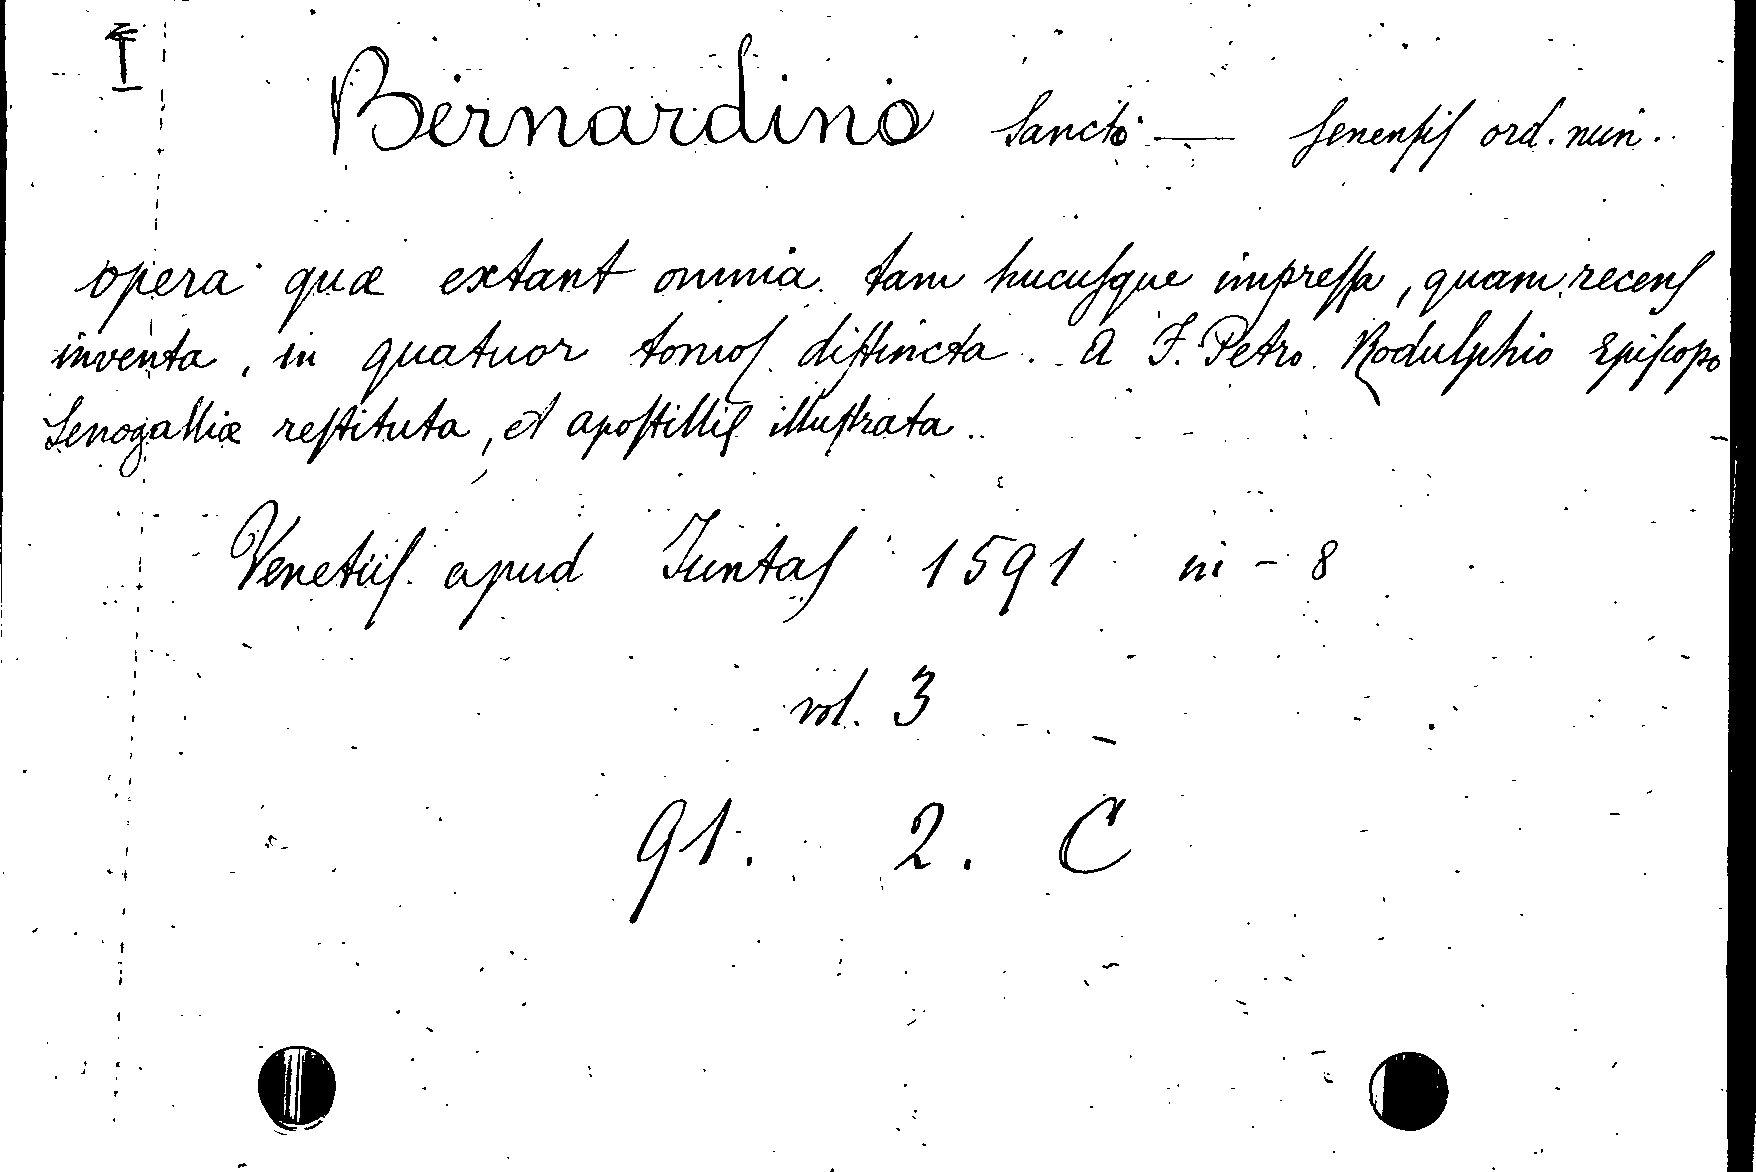 I
Bernardino Sancto — Senensis ord. min.
opera quæ extant omnia tam hucusque impressa, quam recens
inventa, in quatuor tomos distincta. A F. Petro Rodulphio Episcopo
Senogalliæ restituta, et apostillis illustrata.
Venetiis apud Juntas 1591 in-8
vol. 3
91. 2. C